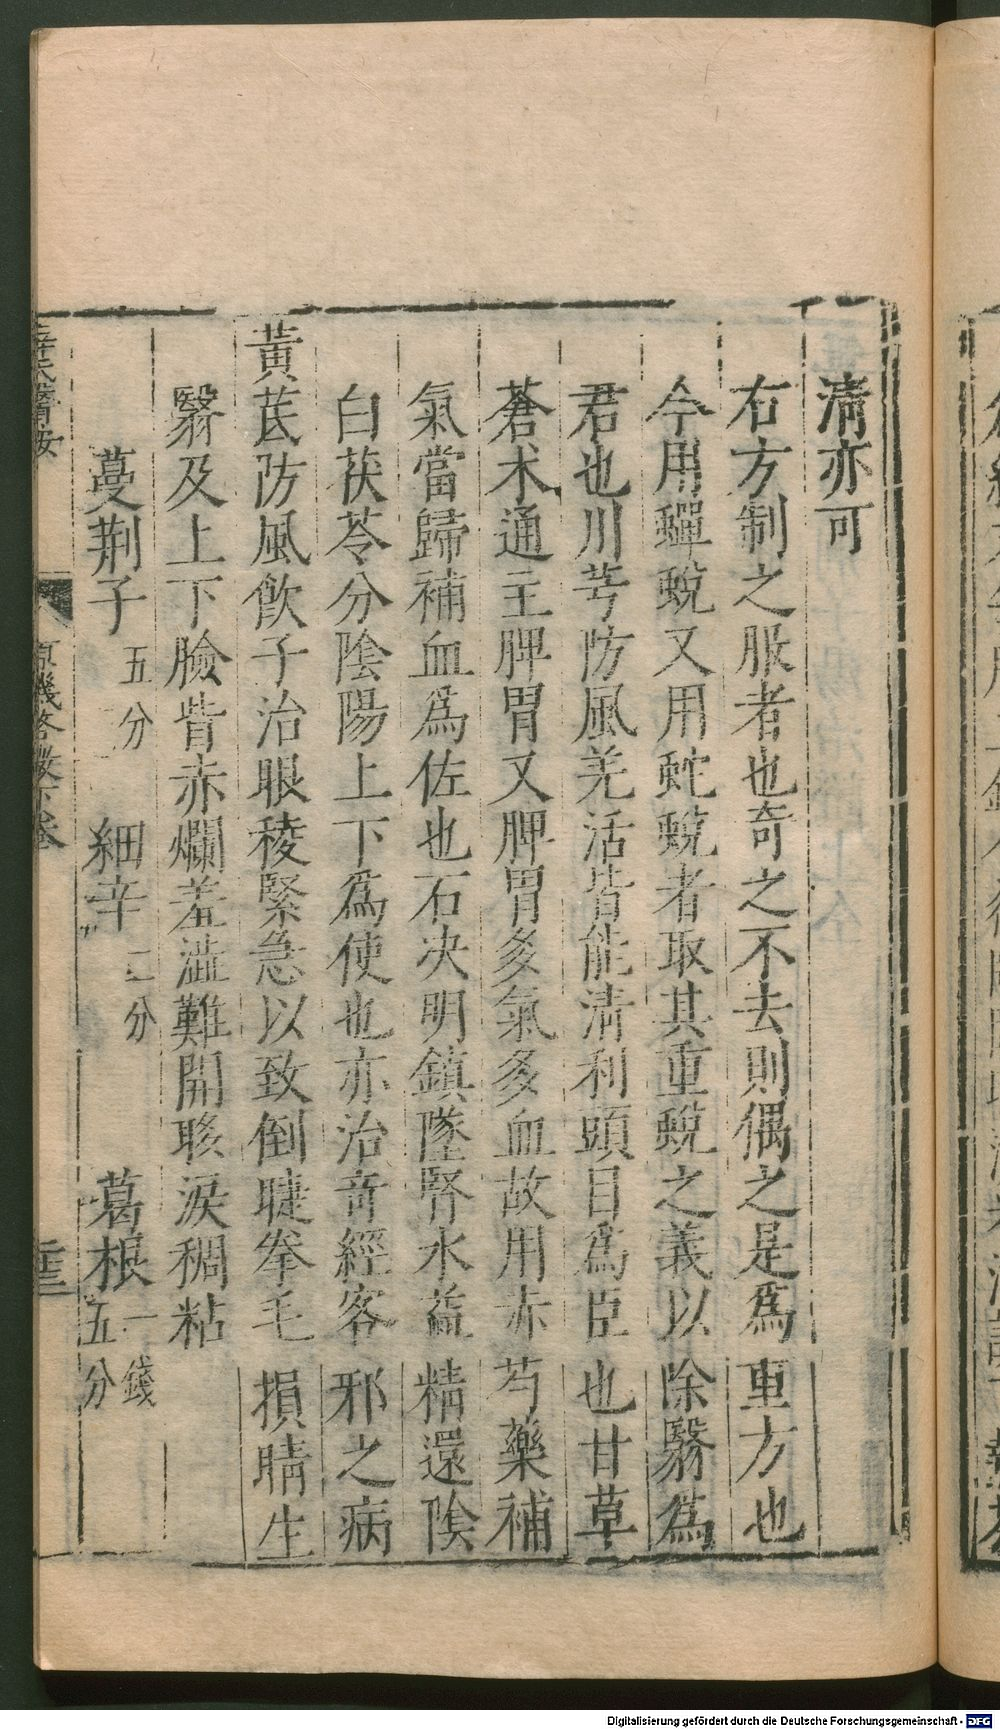 清亦可
右方制之服者也奇之不去則偶之是爲重方也
今用蟬蛻又用蛇蛻者取其重蛻之義以除翳爲
君也川芎防風羌活皆能清利頭目爲臣也甘草
蒼术通主脾胃又脾胃多氣多血故用赤芍藥補
氣當歸補血爲佐也石决明鎮墜腎水益精還陰
白茯苓分陰陽上下爲使也亦治竒經客邪之病
黃芪防風飲子治眼稜緊急以致倒睫拳毛損睛生
翳及上下臉眥赤爛羞澁難開眵淚稠粘
蔓荆子五分 細辛二分 葛根一錢五分
薛氏醫按 原機啓微下卷
Digitalisierung gefördert durch die Deutsche Forschungsgemeinschaft - DFG